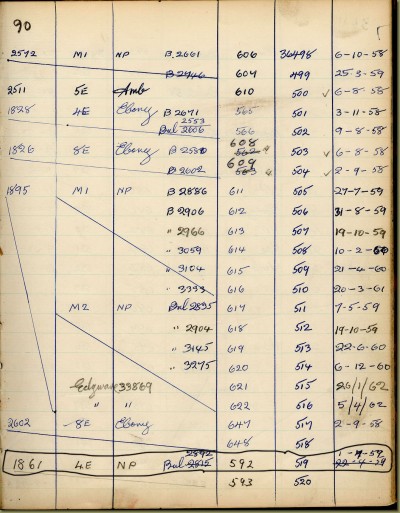 90
2572 M1 NP B 2661 606 36498 6-10-58
B 2446 607 499 25-3-59
2511 5E Amb 610 500 ✓ 6-8-58
1828 4E Ebony B 2671 565 501 3-11-58
2553
Bul 2606 566 502 9-8-58
608
1826 8E Ebony B 2550 562 503 ✓ 6-8-58
609
B 2602 563 504 ✓ 2-9-58
1895 M1 NP B 2886 611 505 27-7-59
B 2906 612 506 31-8-59
" 2966 613 507 19-10-59
" 3059 614 508 10-2-60
" 3104 615 509 21-4-60
" 3333 616 510 20-3-61
M2 NP Bul 2835 617 511 7-5-59
" 2904 618 512 19-10-59
" 3145 619 513 22-6-60
" 3275 620 514 6-12-60
Edgware 33869 621 515 26/1/62
" " 622 516 5/4/62
2602 8E Ebony 647 517 2-9-58
648 518
2892 1-9-59
1861 4E NP Bul 592 519 22-4-59
593 520